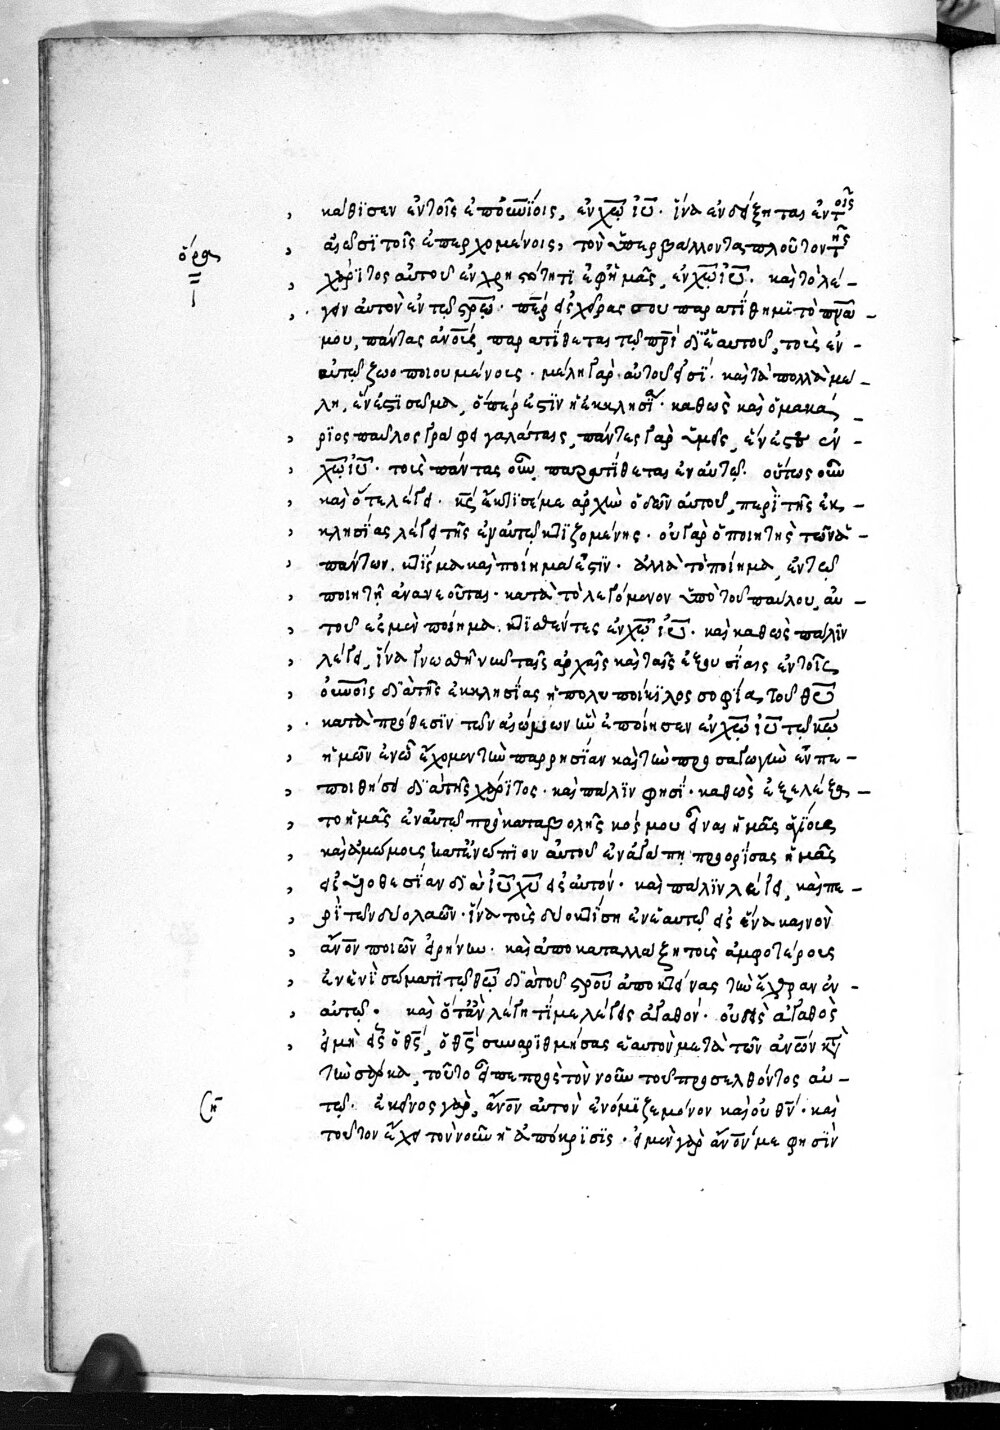 κάθισεν ἐν τοῖς ἐπουνίοις, ἐν χῶ ἰῦ. ἵνα ἐνδείξηται ἐν τοῖς
αἰῶσι τοῖς ἐπερχομένοις, τὸν ὑπερβάλλοντα πλοῦτον τῆς
ὅρα
χάριτος αὐτοῦ ἐν χρηστότητι ἐφ' ἡμᾶς, ἐν χῶ ἰῦ. καὶ τὸ λέ-
γειν αὐτὸν ἐν τῶ σρῶ. περ εἰς χεῖρας σου παρατίθημι τὸ πνᾶ
μου, πάντας ἀνοῖς παρατίθεται τῶ πρὶ δι' ἑαυτοῦ, τοὺς ἐν
αὐτῶ ζωοποιουμένους. μέλη γὰρ αὐτοῦ εἰσί. καὶ τὰ πολλὰ μέ-
λη, ἕν ἐστι σῶμα, ὅπερ ἐστὶν ἡ ἐκκλησία. καθὼς καὶ ὁ μακά
ριος παῦλος γράφει γαλάταις, πάντες γὰρ ὑμεῖς, εἷς ἐστὲ ἐν
χῶ ἰῦ. τοὺς πάντας οὖν παρατίθεται ἐν αὐτῶ. οὕτως οὖν
καὶ ὅτε λέγει. κς ἔκτισέ με ἀρχὴν ὁδῶν αὐτοῦ, περὶ τῆς ἐκ-
κλησίας λέγει τῆς ἐν αὐτῶ κτιζομένης. οὐ γὰρ ὁ ποιητὴς τῶν ἁ-
πάντων, κτίσμα καὶ ποίημα ἐστίν. ἀλλὰ τὸ ποίημα, ἐν τῶ
ποιητῆ ἀνανεοῦται. κατὰ τὸ λεγόμενον ὑπὸ τοῦ παύλου, αὐ-
τοῦ ἐσμεν ποίημα, κτισθέντες ἐν χῶ ἰῦ. καὶ καθὼς πάλιν
λέγει, ἵνα γνωρισθῆ νῦν ταῖς ἀρχαῖς καὶ ταῖς ἐξουσίαις ἐν τοῖς
οὐνοῖς διὰ τῆς ἐκκλησίας ἡ πολυποίκιλος σοφία τοῦ θῦ
κατὰ πρόθεσιν τῶν αἰώνων ἣν ἐποίησεν ἐν χῶ ἰῦ τῶ κῶ
ἡμῶν ἐν ὧ ἔχομεν τὴν παρρησίαν καὶ τὴν προσαγωγὴν ἐν πε-
ποιθήσει διὰ τῆς χάριτος. καὶ πάλιν φησί. καθὼς ἐξελέξα-
το ἡμᾶς ἐν αὐτῶ πρὸ καταβολῆς κόσμου εἶναι ἡμᾶς ἁγίους
καὶ ἀμώμους κατενώπιον αὐτοῦ ἐν ἀγάπη προορίσας ἡμᾶς
εἰς υἱοθεσίαν διὰ ἰῦ χῦ εἰς αὐτόν. καὶ πάλιν λέγει, καὶ πε-
ρὶ τῶν δύο λαῶν. ἵνα τοὺς δύο κτίση ἐν ἑαυτῶ εἰς ἕνα καινὸν
ἄνον ποιῶν εἰρήνην. καὶ ἀποκαταλλάξη τοὺς ἀμφοτέρους
ἐν ἑνὶ σώματι τῶ θῶ διὰ τοῦ σροῦ ἀποκτείνας τὴν ἔχθραν ἐν
αὐτῶ. καὶ ὅταν λέγη τί με λέγεις ἀγαθόν. οὐδεὶς ἀγαθὸς
εἰ μὴ εἷς ὁ θς, ὁ θς συναριθμήσας ἑαυτὸν μετὰ τῶν ἀνων κατὰ
τὴν σάρκα, τοῦτο εἶπε πρὸς τὸν νοῦν τοῦ προσελθόντος αὐ-
τῶ. ἐκεῖνος γὰρ, ἄνον αὐτὸν ἐνόμιζε μόνον καὶ οὐ θν. καὶ
τοῦτον ἔχει τὸν νοῦν ἡ ἀπόκρισις. εἰ μὲν γὰρ ἄνον με φησὶν